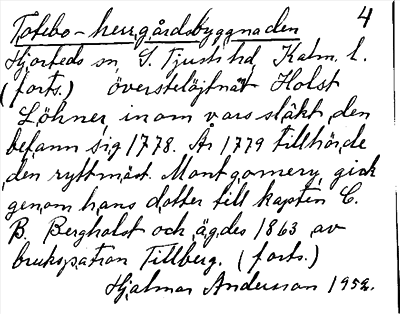 4
Totebo-herrgårdsbyggnaden
Hjorteds sn, S. Tjusts hd, Kalm. l.
(forts.) överstelöjtnat Holst
Löhner, inom vars släkt den
befann sig 1778. År 1779 tillhörde
den ryttmäst. Montgomery, gick
genom hans dotter till kapten C.
B. Bergholst och ägdes 1863 av
brukspatron Tillberg. (forts.)
Hjalmar Andersson 1952.